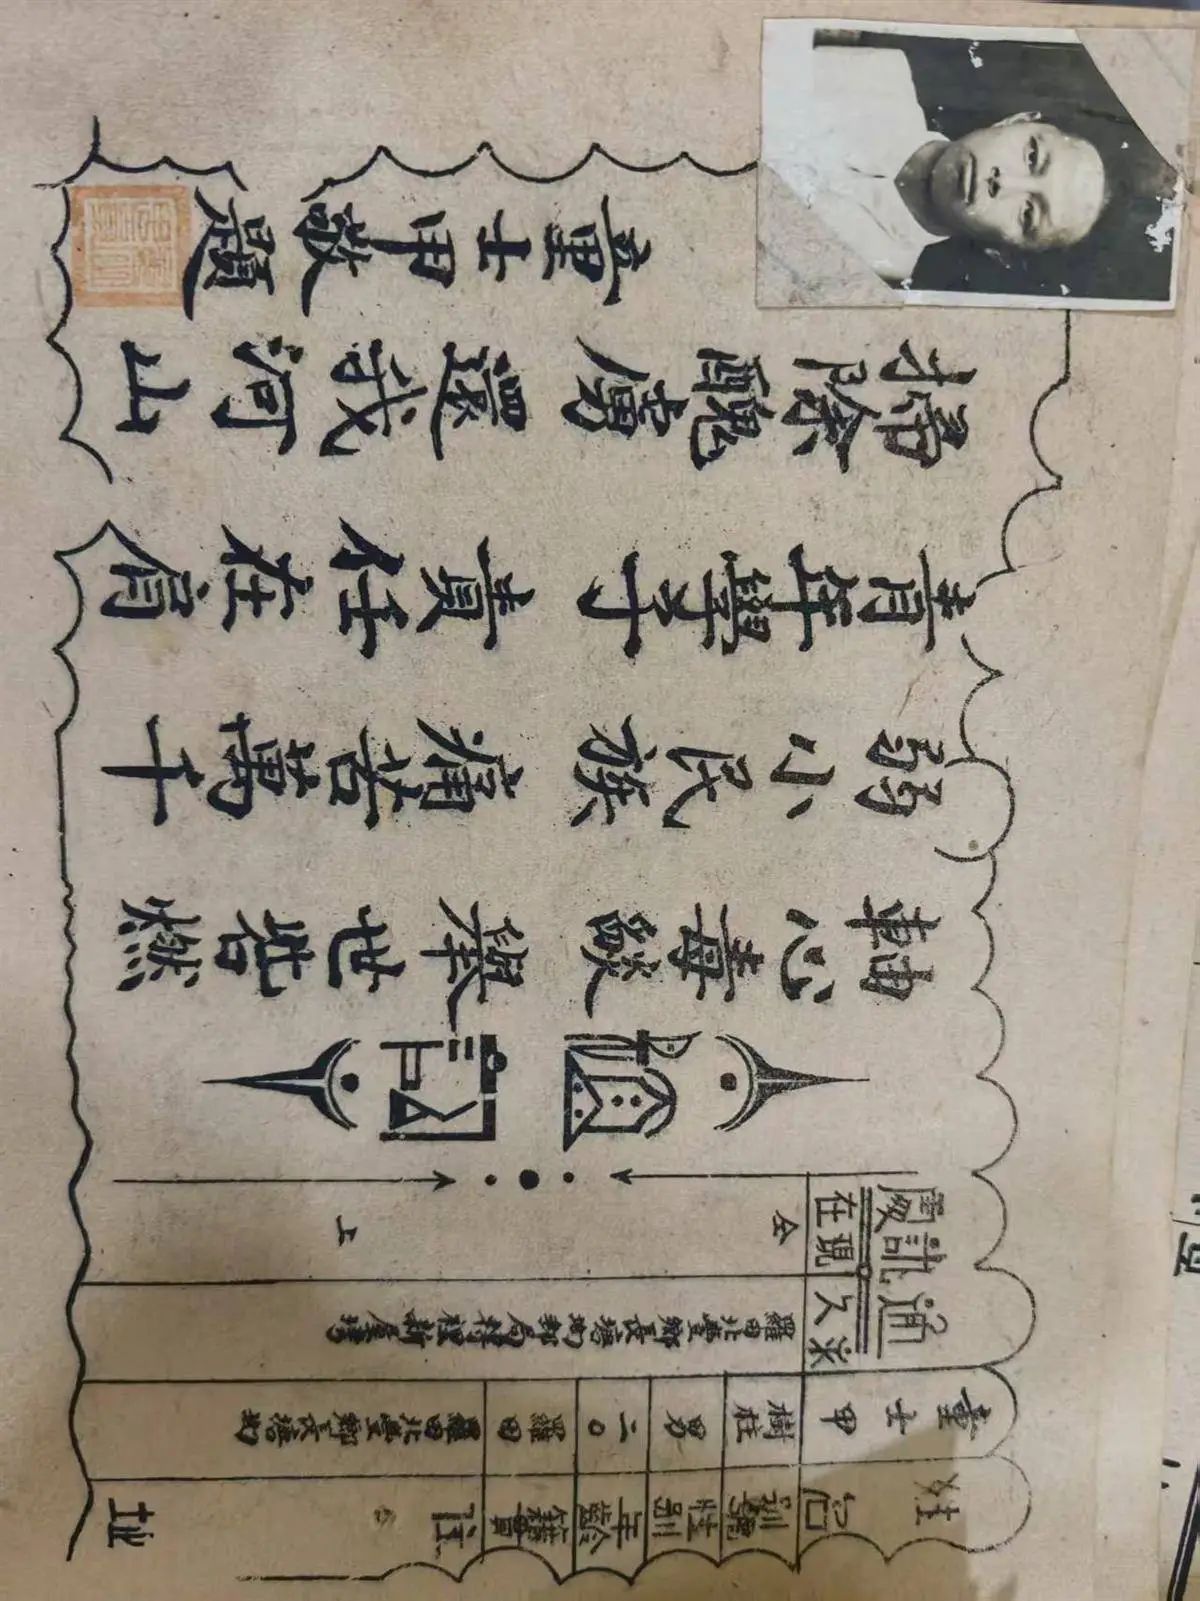 姓名 別號 性別 年齡 籍貫 住址
童士甲 樹莊 男 二〇 羅田 羅田北豐鄉長塘坳
通訊處
永久 羅田北豐鄉長塘坳郵局轉程新屋塆
現在 仝上
軸心毒燄 舉世皆燃
弱小民族 痛苦萬千
青年學子 責任在肩
掃除醜虜 還我河山
童士甲敬題